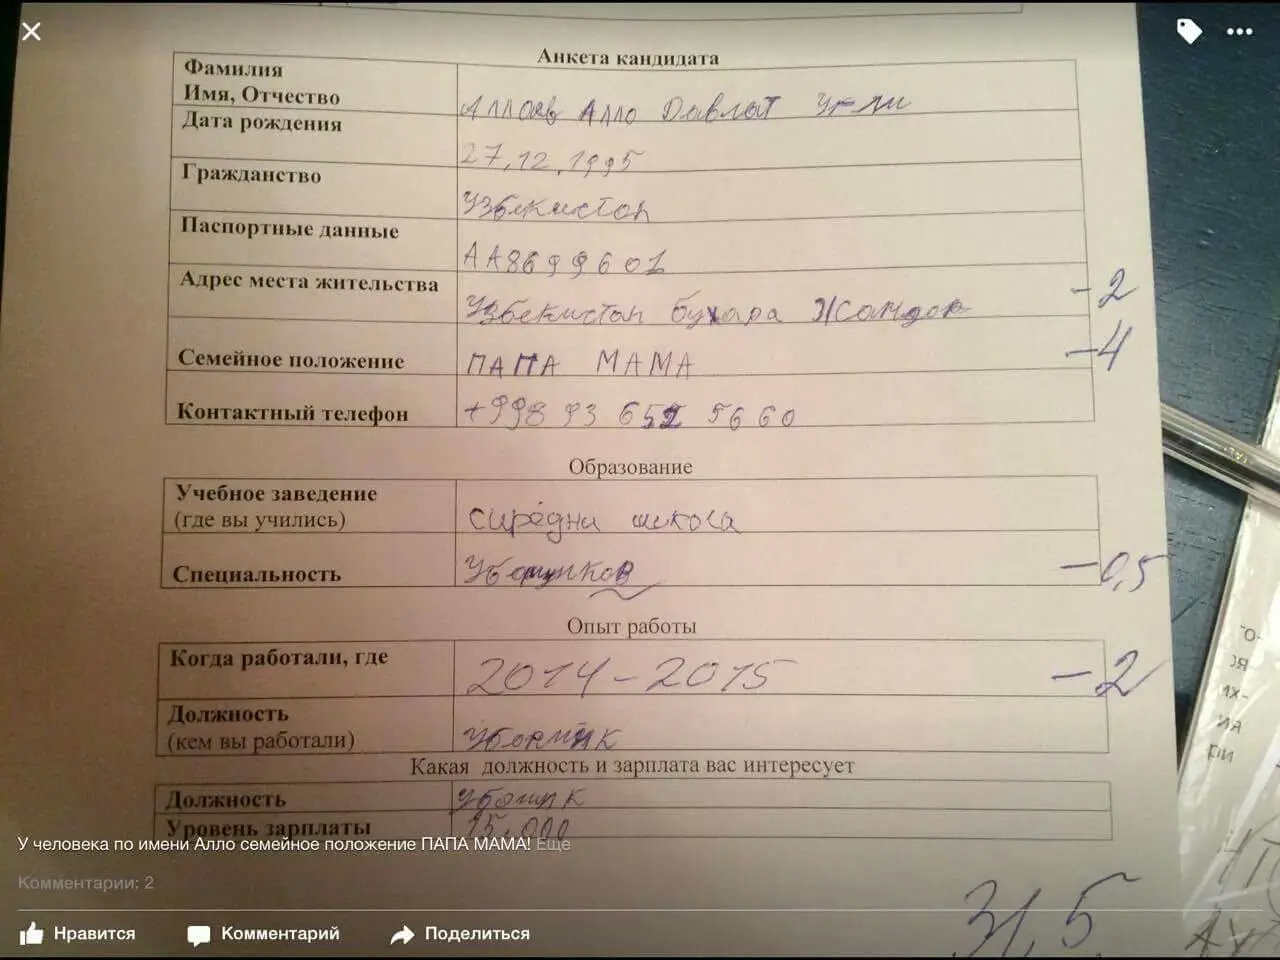 Анкета кандидата
Фамилия
Имя, Отчество
Аллоев Алло Давлат Угли
Дата рождения
27.12.1995
Гражданство
Узбекистон
Паспортные данные
АА8699601
Адрес места жительства
Узбекистон бухара Жондор
-2
Семейное положение
ПАПА МАМА
-4
Контактный телефон
+998 93 652 5660
Образование
Учебное заведение
(где вы учились)
сиредни школа
Специальность
-0,5
Опыт работы
Когда работали, где
2014-2015
-2
Должность
(кем вы работали)
Какая должность и зарплата вас интересует
Должность
Уровень зарплаты
15.000
У человека по имени Алло семейное положение ПАПА МАМА! Еще
Комментарии: 2
31,5
Нравится Комментарий Поделиться